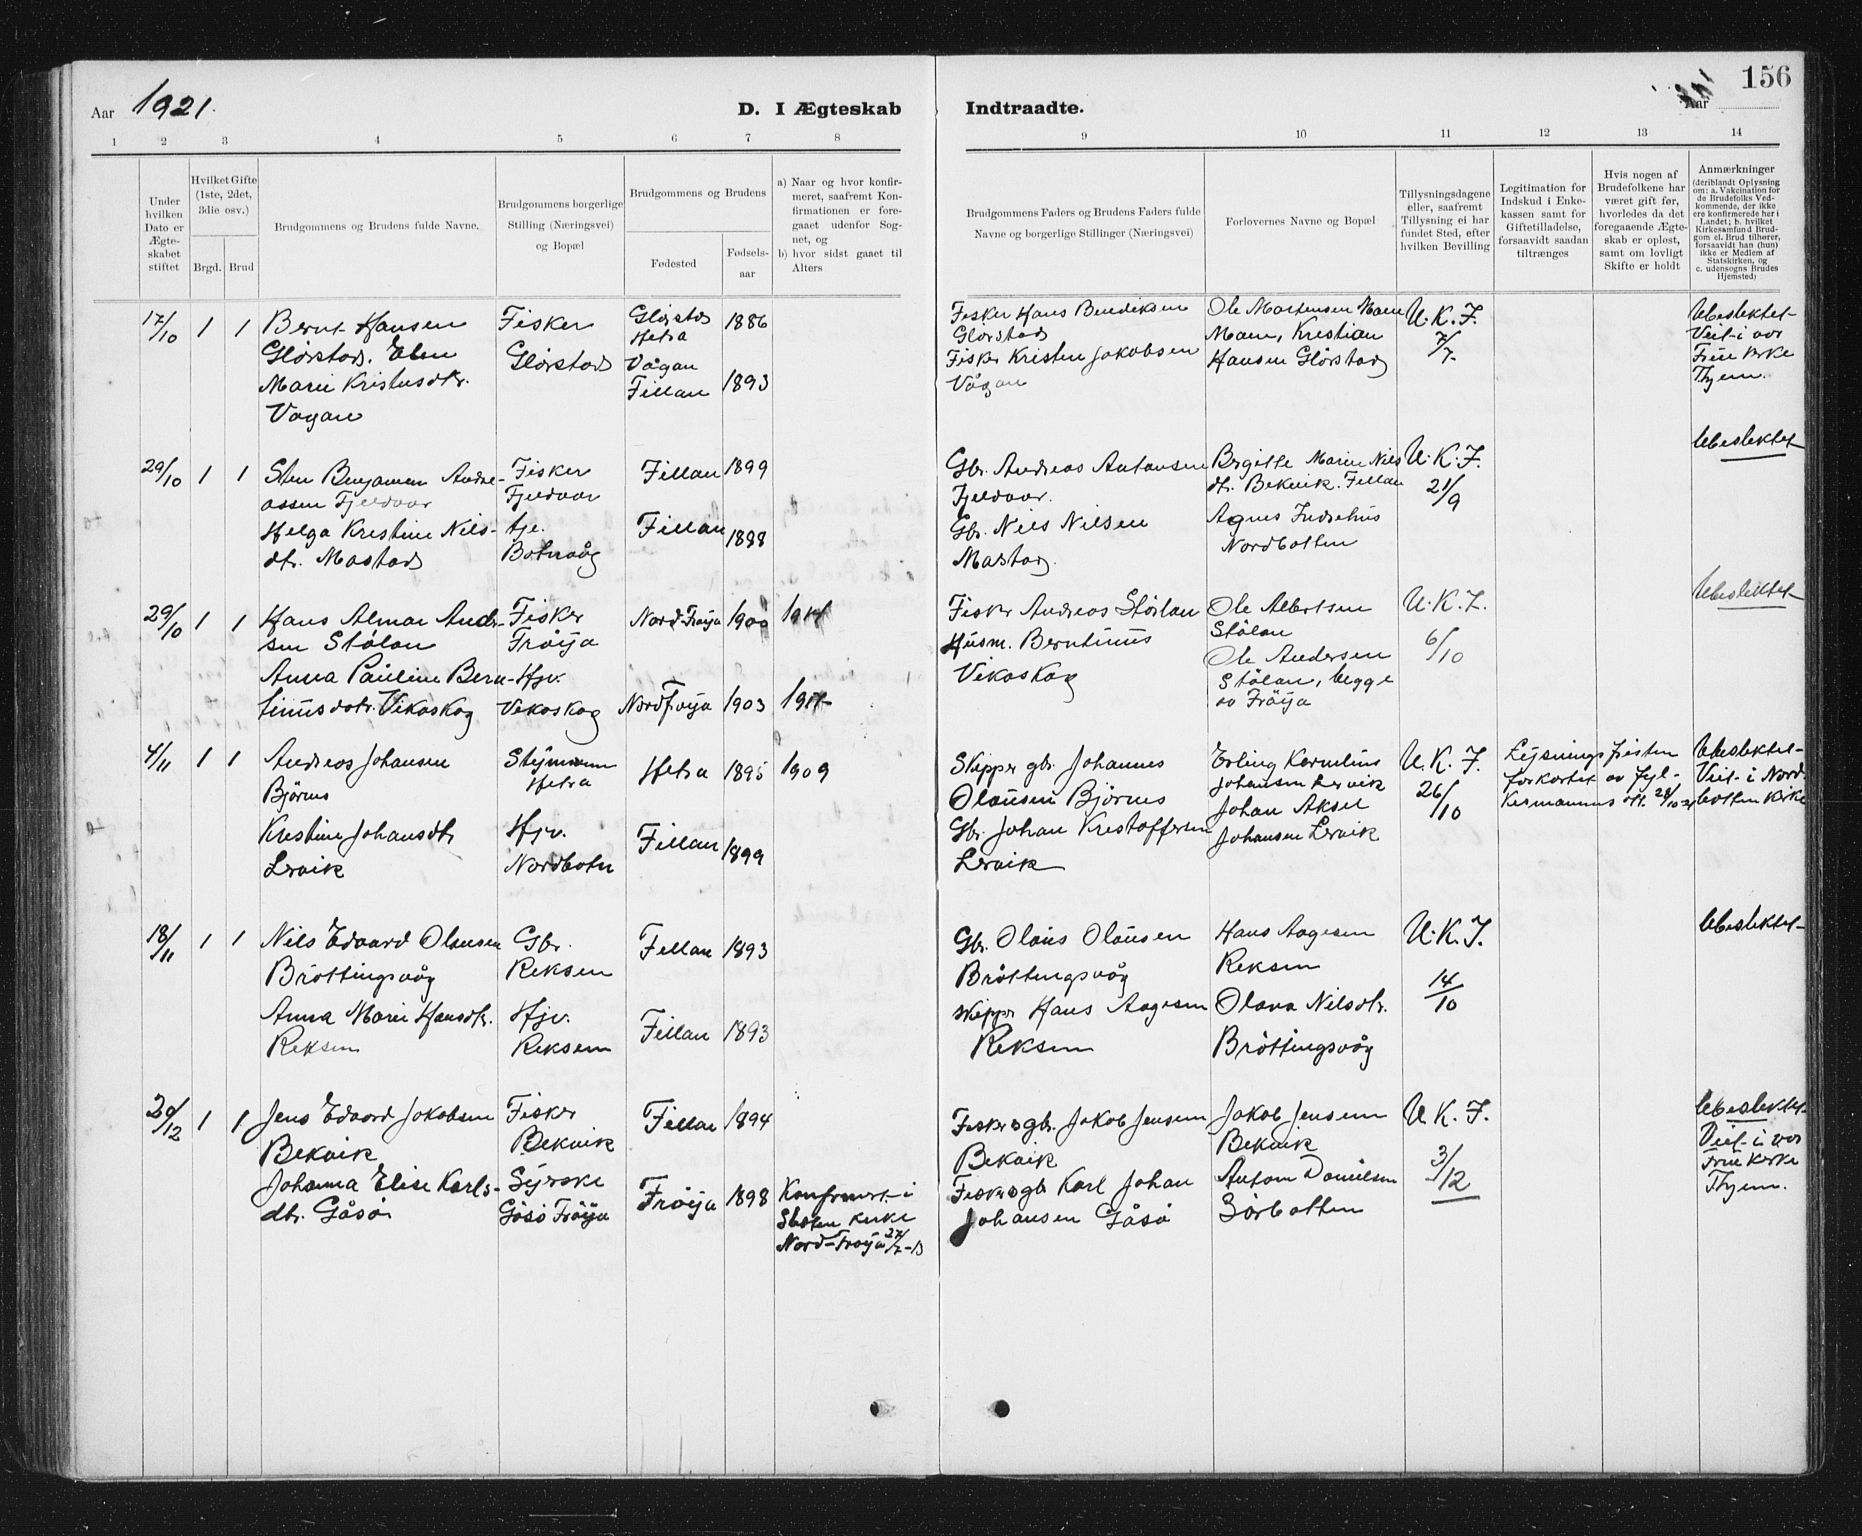 156
Aar 1921.
D. I Ægteskab Indtraadte.
Aar
1 2 3 4 5 6 7 8 9 10 11 12 13 14
Under hvilken Dato er Ægteskabet stiftet
Hvilket Gifte (1ste, 2det, 3die osv.)
Brgd. Brud
Brudgommens og Brudens fulde Navne.
Brudgommens borgerlige Stilling (Næringsvei) og Bopæl
Brudgommens og Brudens
Fødested
Fødsels-aar
a) Naar og hvor konfir-
meret, saafremt Kon-
firmationen er fore-
gaaet udenfor Sog-
net, og
b) hvor sidst gaaet til
Alters
Brudgommens Faders og Brudens Faders fulde
Navne og borgerlige Stillinger (Næringsvei)
Forlovernes Navne og Bopæl
Tillysningsdagene
eller, saafremt
Tillysning ei har
fundet Sted, efter
hvilken Bevilling
Legitimation for
Indskud i Enke-
kassen samt for
Giftetilladelse,
forsaavidt saadan
tiltrænges
Hvis nogen af
Brudefolkene har
været gift før,
hvorledes da det
foregaaende Ægte-
skab er opløst,
samt om lovligt
Skifte er holdt
Anmærkninger
(deriblandt Oplysning
om: a. Vakcination for
de Brudefolks Ved-
kommende, der ikke
ere konfirmerede her i
Landet; b. hvilket
Kirkesamfund Brud-
gom el. Brud tilhører,
forsaavidt han (hun)
ikke er Medlem af
Statskirken, og
c. udensogns Brudes
Hjemsted)
17/10 1 1
Bernt Hansen
Glørstad. Elen
Marie Kristensdtr.
Vågan
Fisker
Glørstad
Glørstad
Hitra
Vågan
Fillan
1886
1893
Fisker Hans Bendiksen
Glørstad
Fisker Kristen Jakobsen
Vågan
Ole Mortensen
Kristian
Hansen Glørstad
U. K. F.
7/7
Ubeslektet
Viet i vor
Frue kirke
Thjem.
29/10 1 1
Sten Benjamin Andre-
assen Fjeldvær
Helga Kristine Nils-
dtr. Mastad
Fisker
Fjeldvær
tje.
Botnvåg
Fillan 1899
Fillan 1888
Gbr. Andreas Antonsen
Fjeldvær.
Gbr. Nils Nilsen
Mastad.
Birgitte Marie Nils
dtr. Bekvik. Fillan
Nordbotten
U. K. F.
21/9
Ubeslektet
29/10 1 1
Hans Almar Ander-
sen Stølan
Anna Pauline Bern-
tinusdatr. Vikaskog
Fisker
Frøija
Hjv.
Vikaskog
Nord-Frøija 1900
Nordfrøija 1903
Fisker Andreas Stølan
Husm. Berntinus
Vikaskog
Ole Albertsen
Stølan
Ole Andersen
Stølan, begge
av Frøija
U. K. F.
6/10
Ubeslektet
4/11 1 1
Andreas Johansen
Bjørnes
Kristine Johansdtr
Lervik
Styrmann
Hitra
Hjv.
Nordbotn
Hitra 1895 1909
Fillan 1899
Skipper gbr. Johannes
Olausen Bjørnes
Gbr. Johan Kristoffersen
Lervik
Erling Kornelius
Johansen Lervik
Johan Aksel
Johansen Lervik
U. K. F.
26/10
Lysningsfristen
forkortet av Fyl-
kesmannens
Ubeslektet
Viet i Nord-
botten kirke
18/11 1 1
Nils Edvard Olausen
Brøttingsvåg
Anna Marie Hansdtr.
Reksen
Gbr.
Reksen
Hjv.
Reksen
Fillan 1893
Fillan 1893
Gbr. Olaus Olausen
Brøttingsvåg
Skipper Hans Aagesen
Reksen
Hans Aagesen
Reksen
Olava Nilsdtr.
Brøttingsvåg
U. K. F.
14/10
Ubeslektet
20/12 1 1
Jens Edvard Jakobsen
Bekvik
Johanna Elise Karls-
dtr. Gåsø
Fisker
Bekvik
Syerske
Gåsø Frøija
Fillan 1894
Frøija 1898
Konfirmert i
Sletten kirke
Nord-Frøija 27/7-13
Fisker og gbr. Jakob Jensen
Bekvik
Fisker og gbr Karl Johan
Johansen Gåsø
Jakob Jensen
Bekvik
Anton Danielsen
Sørbotten
U. K. F.
3/12
Ubeslektet
Viet i vor
Frue kirke
Thjem.